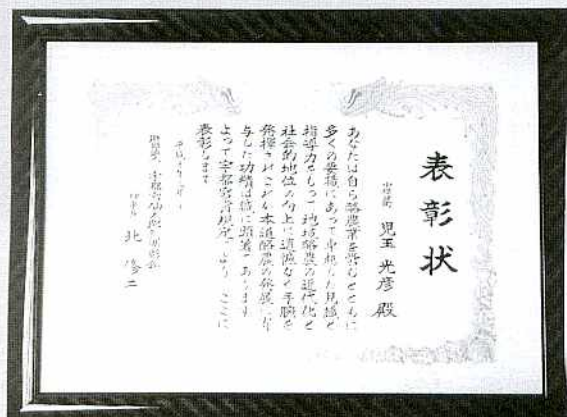 表彰状
児玉光彦殿
あなたは自ら酪農業を営むとともに
多くの要職にあって卓越した見識と
指導力をもって地域酪農の近代化と
社会的地位の向上に遺憾なく手腕を
発揮されことに本道酪農の発展に寄
与した功績は誠に顕著であります
よって宇都宮賞規定により ここに
表彰します
平成
北 修二